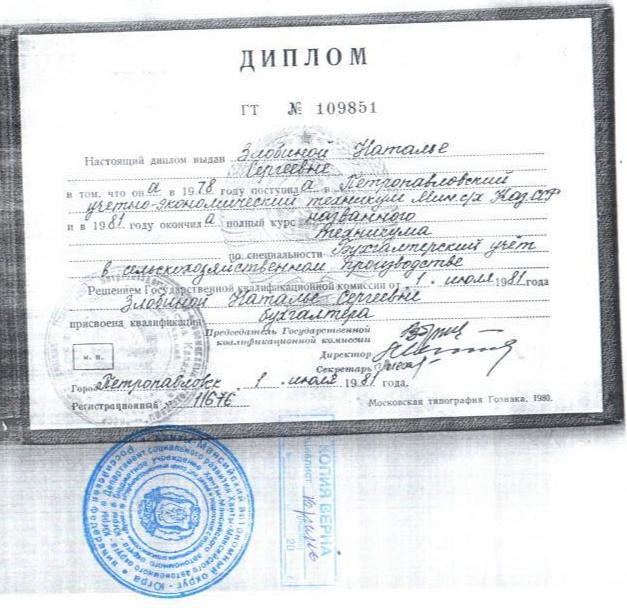 ДИПЛОМ
ГТ № 109851
Настоящий диплом выдан Злобиной Наталье
Сергеевне
в том, что она в 1978 году поступила в Петропавловский
учетно-экономический техникум Мин.с/х Каз.ССР
и в 1981 году окончила полный курс названного
техникума
по специальности Бухгалтерский учёт
в сельскохозяйственном производстве
Решением Государственной квалификационной комиссии от 1 июля 1981 года
Злобиной Наталье Сергеевне
присвоена квалификация бухгалтера
Председатель Государственной
квалификационной комиссии
Директор
Секретарь
м. п.
Город Петропавловск 1 июля 1981 года.
Регистрационный № 11676
Московская типография Гознака. 1980.
КОПИЯ ВЕРНА
20
Российская Федерация • Ханты-Мансийский автономный округ - Югра
Департамент социального развития Ханты-Мансийского автономного округа - Югры